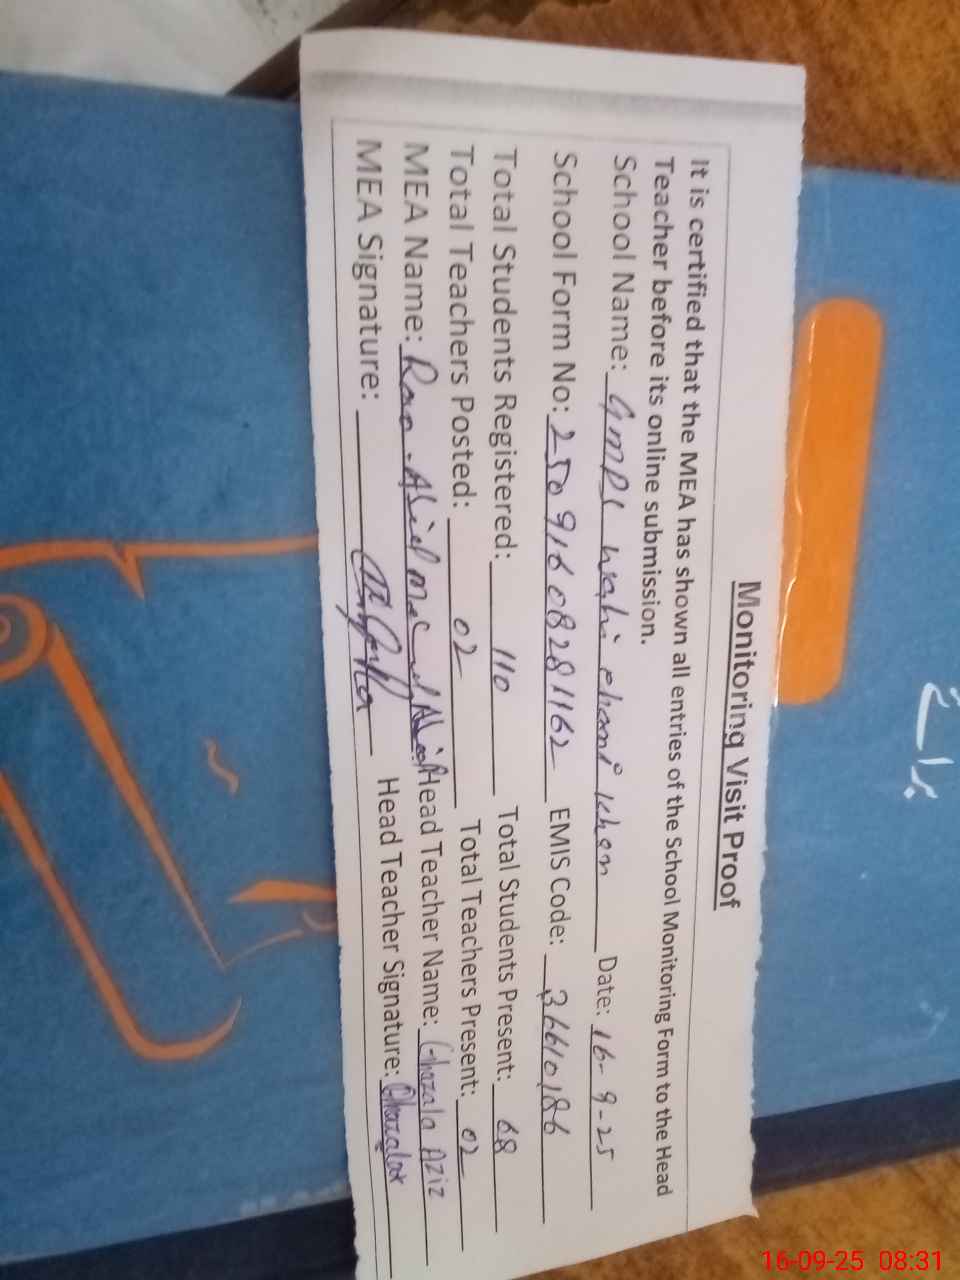 Monitoring Visit Proof
It is certified that the MEA has shown all entries of the School Monitoring Form to the Head
Teacher before its online submission.
School Name: GMPS Khan Date: 16-9-25
School Form No: 25091608281162 EMIS Code: 36610186
Total Students Registered: 110 Total Students Present: 68
Total Teachers Posted: 02 Total Teachers Present: 02
MEA Name: Rao Head Teacher Name: Ghazala Aziz
MEA Signature: Head Teacher Signature: Ghazala
16-09-25 08:31